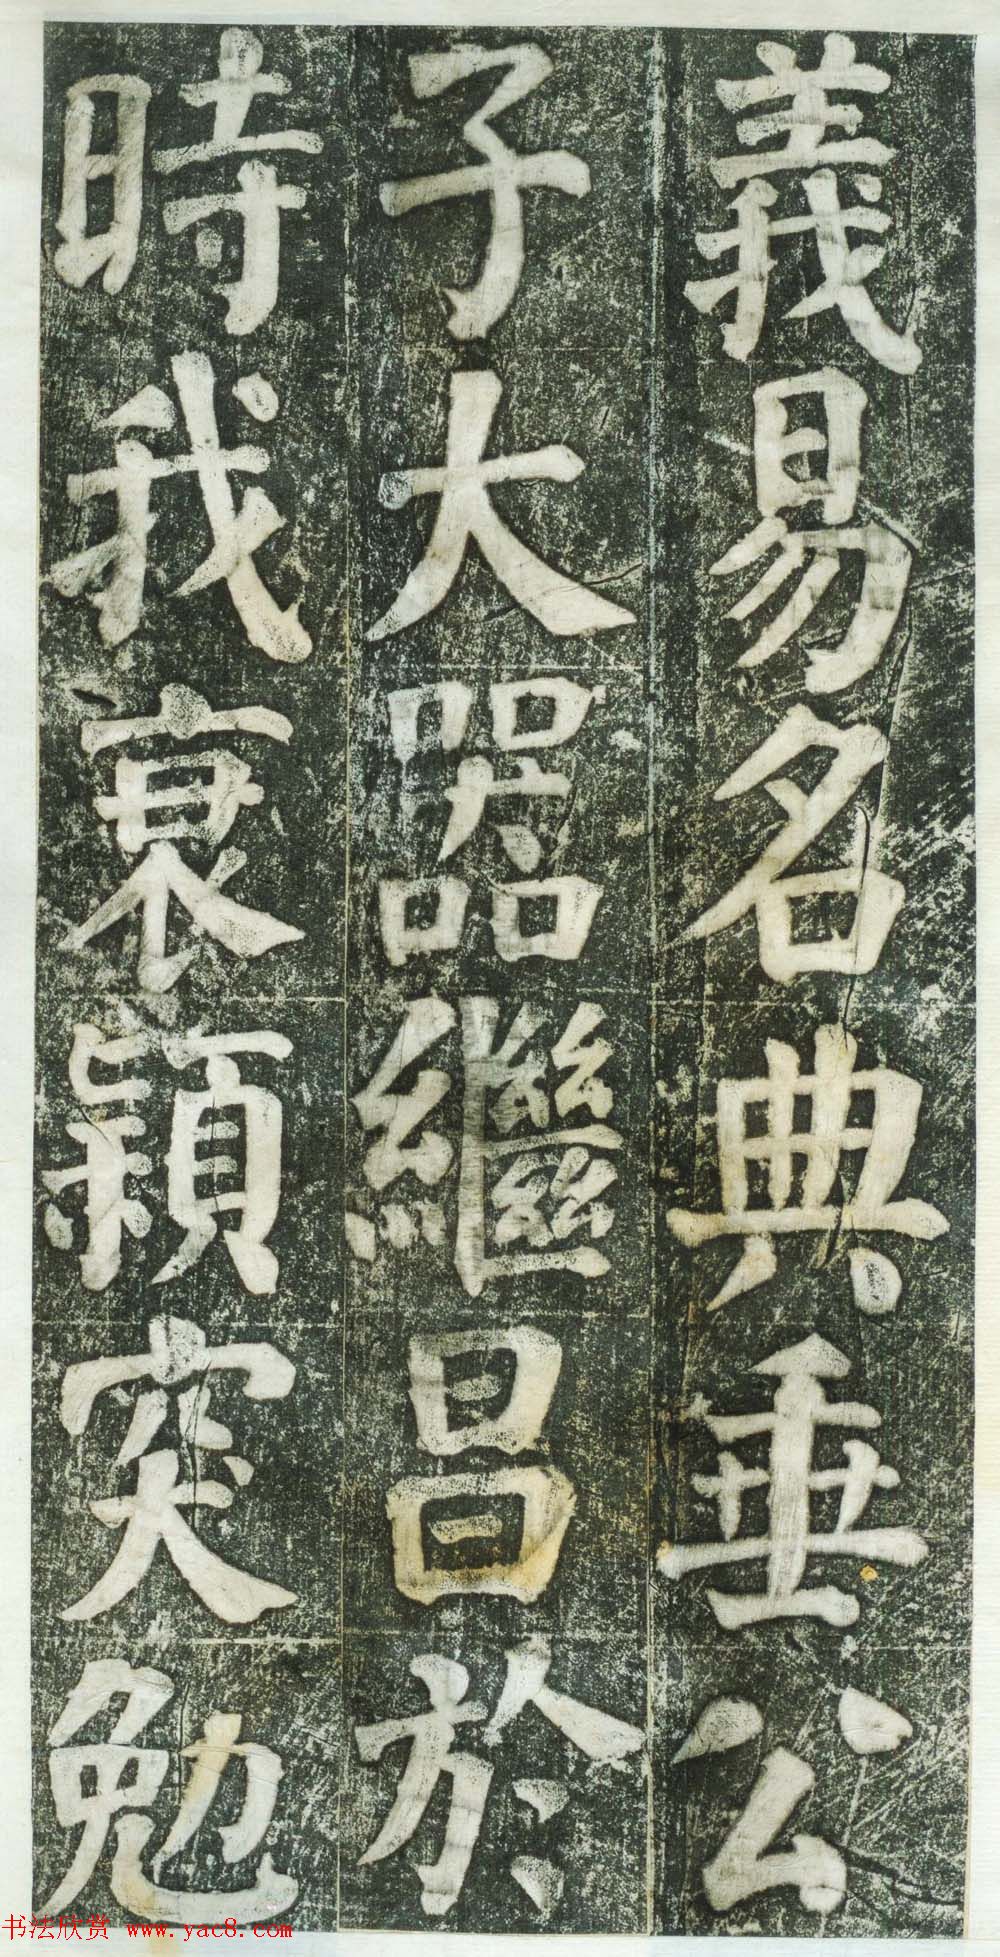 義易名典垂公
子大器繼昌於
時我裵頴突勉
书法欣赏 www.yac8.com